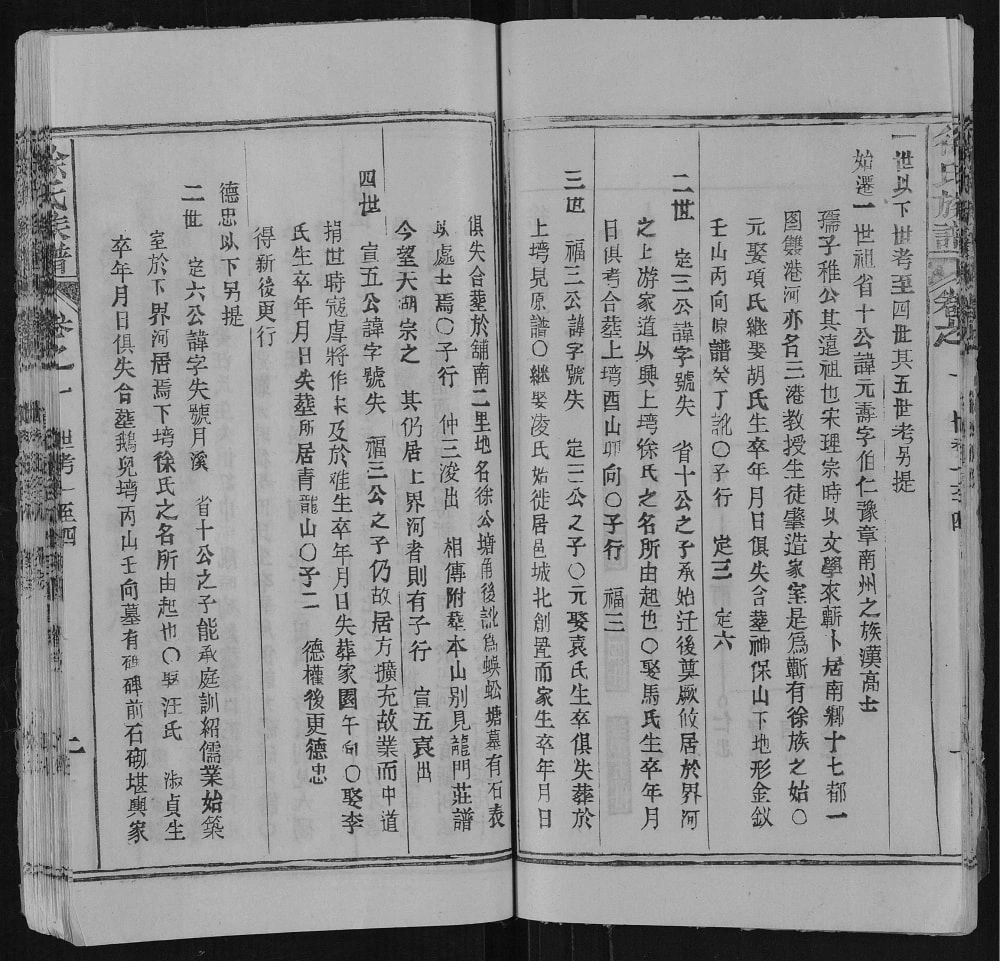 徐氏族譜
卷之一
一世以下世考至四世其五世考另提
始遷一世祖省十公諱元壽字伯仁豫章南州之族漢高士
孺子稚公其遠祖也宋理宗時以文學來蘄卜居南鄉十七都一
圖雙港河亦名三港教授生徒肇造家室是為蘄有徐族之始〇
元娶項氏継娶胡氏生卒年月日俱失合塟神保山下地形金釵
壬山丙向原譜癸丁訛〇子行 定三 定六
二世 定三公諱字號失 省十公之子承始迁後奠厥攸居於界河
之上游家道以興上塆徐氏之名所由起也〇娶馬氏生卒年月
日俱考合塟上塆酉山卯向〇子行 福三
三世 福三公諱字號失 定三公之子〇元娶袁氏生卒俱失葬於
上塆見原譜〇継娶凌氏始徙居邑城北創置而家生卒年月日
俱失合塟於舖南二里地名徐公塘角後訛為蜈蚣塘墓有石表
以處士焉〇子行 仲三浚出 相傳附塟本山別見龍門莊譜
今望天湖宗之 其仍居上界河者則有子行 宣五袁出
四世 宣五公諱字號失 福三公之子仍故居方擴充故業而中道
捐世時寇虐將作未及於难生卒年月日失葬家園午向〇娶李
氏生卒年月日失塟所居青龍山〇子二 德權後更德忠
得新後更行
德忠以下另提
二世 定六公諱字失號月溪 省十公之子能承庭訓紹儒業始築
室於下界河居焉下塆徐氏之名所由起也〇娶汪氏 淑貞生
卒年月日俱失合塟鵝兒塆丙山壬向墓有碑前石砌堪輿家
徐氏族譜
卷之一
世考一至四
二